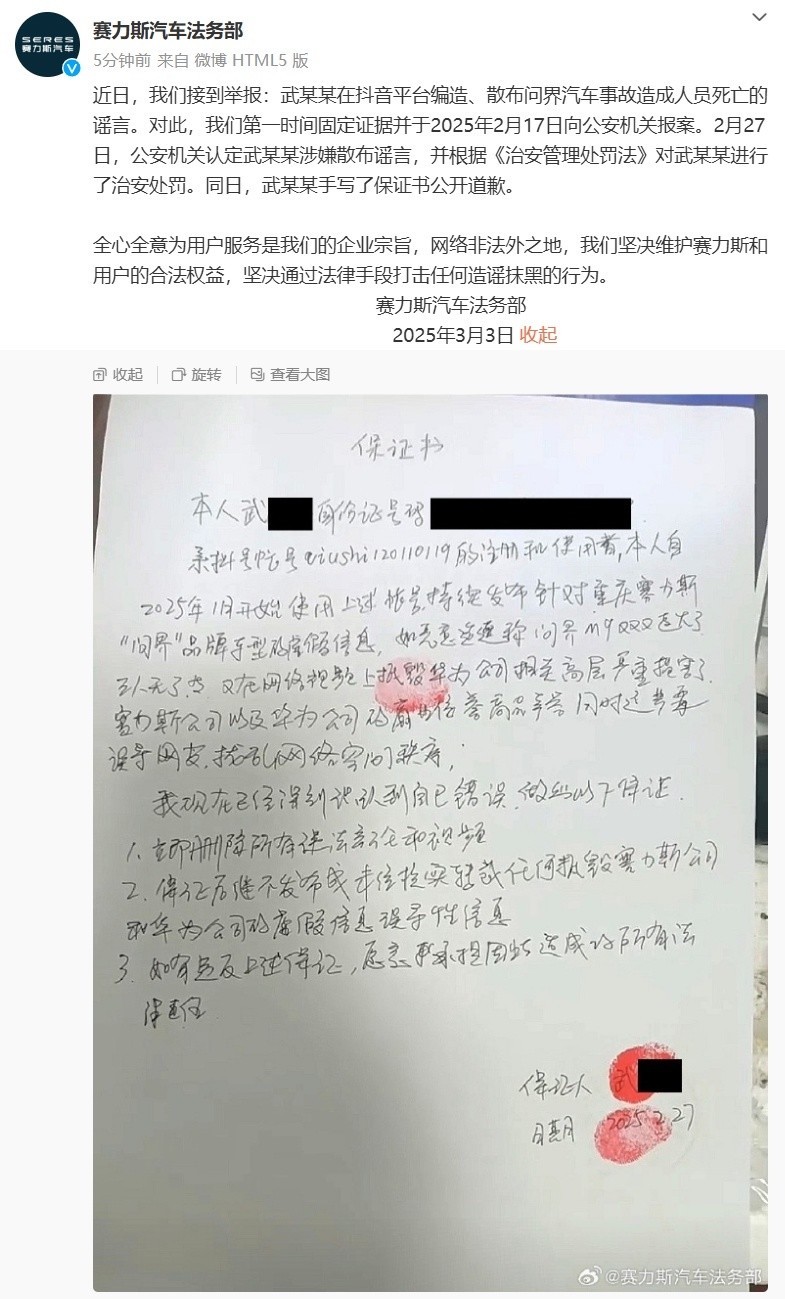 SERES
赛力斯汽车
赛力斯汽车法务部
5分钟前 来自 微博 HTML5 版
近日，我们接到举报：武某某在抖音平台编造、散布问界汽车事故造成人员死亡的
谣言。对此，我们第一时间固定证据并于2025年2月17日向公安机关报案。2月27
日，公安机关认定武某某涉嫌散布谣言，并根据《治安管理处罚法》对武某某进行
了治安处罚。同日，武某某手写了保证书公开道歉。
全心全意为用户服务是我们的企业宗旨，网络非法外之地，我们坚决维护赛力斯和
用户的合法权益，坚决通过法律手段打击任何造谣抹黑的行为。
赛力斯汽车法务部
2025年3月3日 收起
收起 旋转 查看大图
保证书
本人武 身份证号码
系抖号帐号qiushi120110119的注册和使用者,本人自
2025年1月开始使用上述帐号,持续发布针对重庆赛力斯
"问界"品牌车型的虚假信息，如恶意造谣称问界M9XXX起火了
三人无了,当 又在网络视频上抵毁华为公司相关高层严重损害了
赛力斯公司以及华为公司的商业信誉商品声誉 同时这严重
误导网友,扰乱网络空间秩序；
我现在已经深刻认识到自己错误,做出以下保证.
1、立即删除所有违法言论和视频
2、保证后继不发布或未经核实转载任何抵毁赛力斯公司
和华为公司的虚假信息误导性信息
3、如有违反上述保证，愿意承担因此造成的所有法
律责任
保证人 武
日期 2025.2.27
@赛力斯汽车法务部